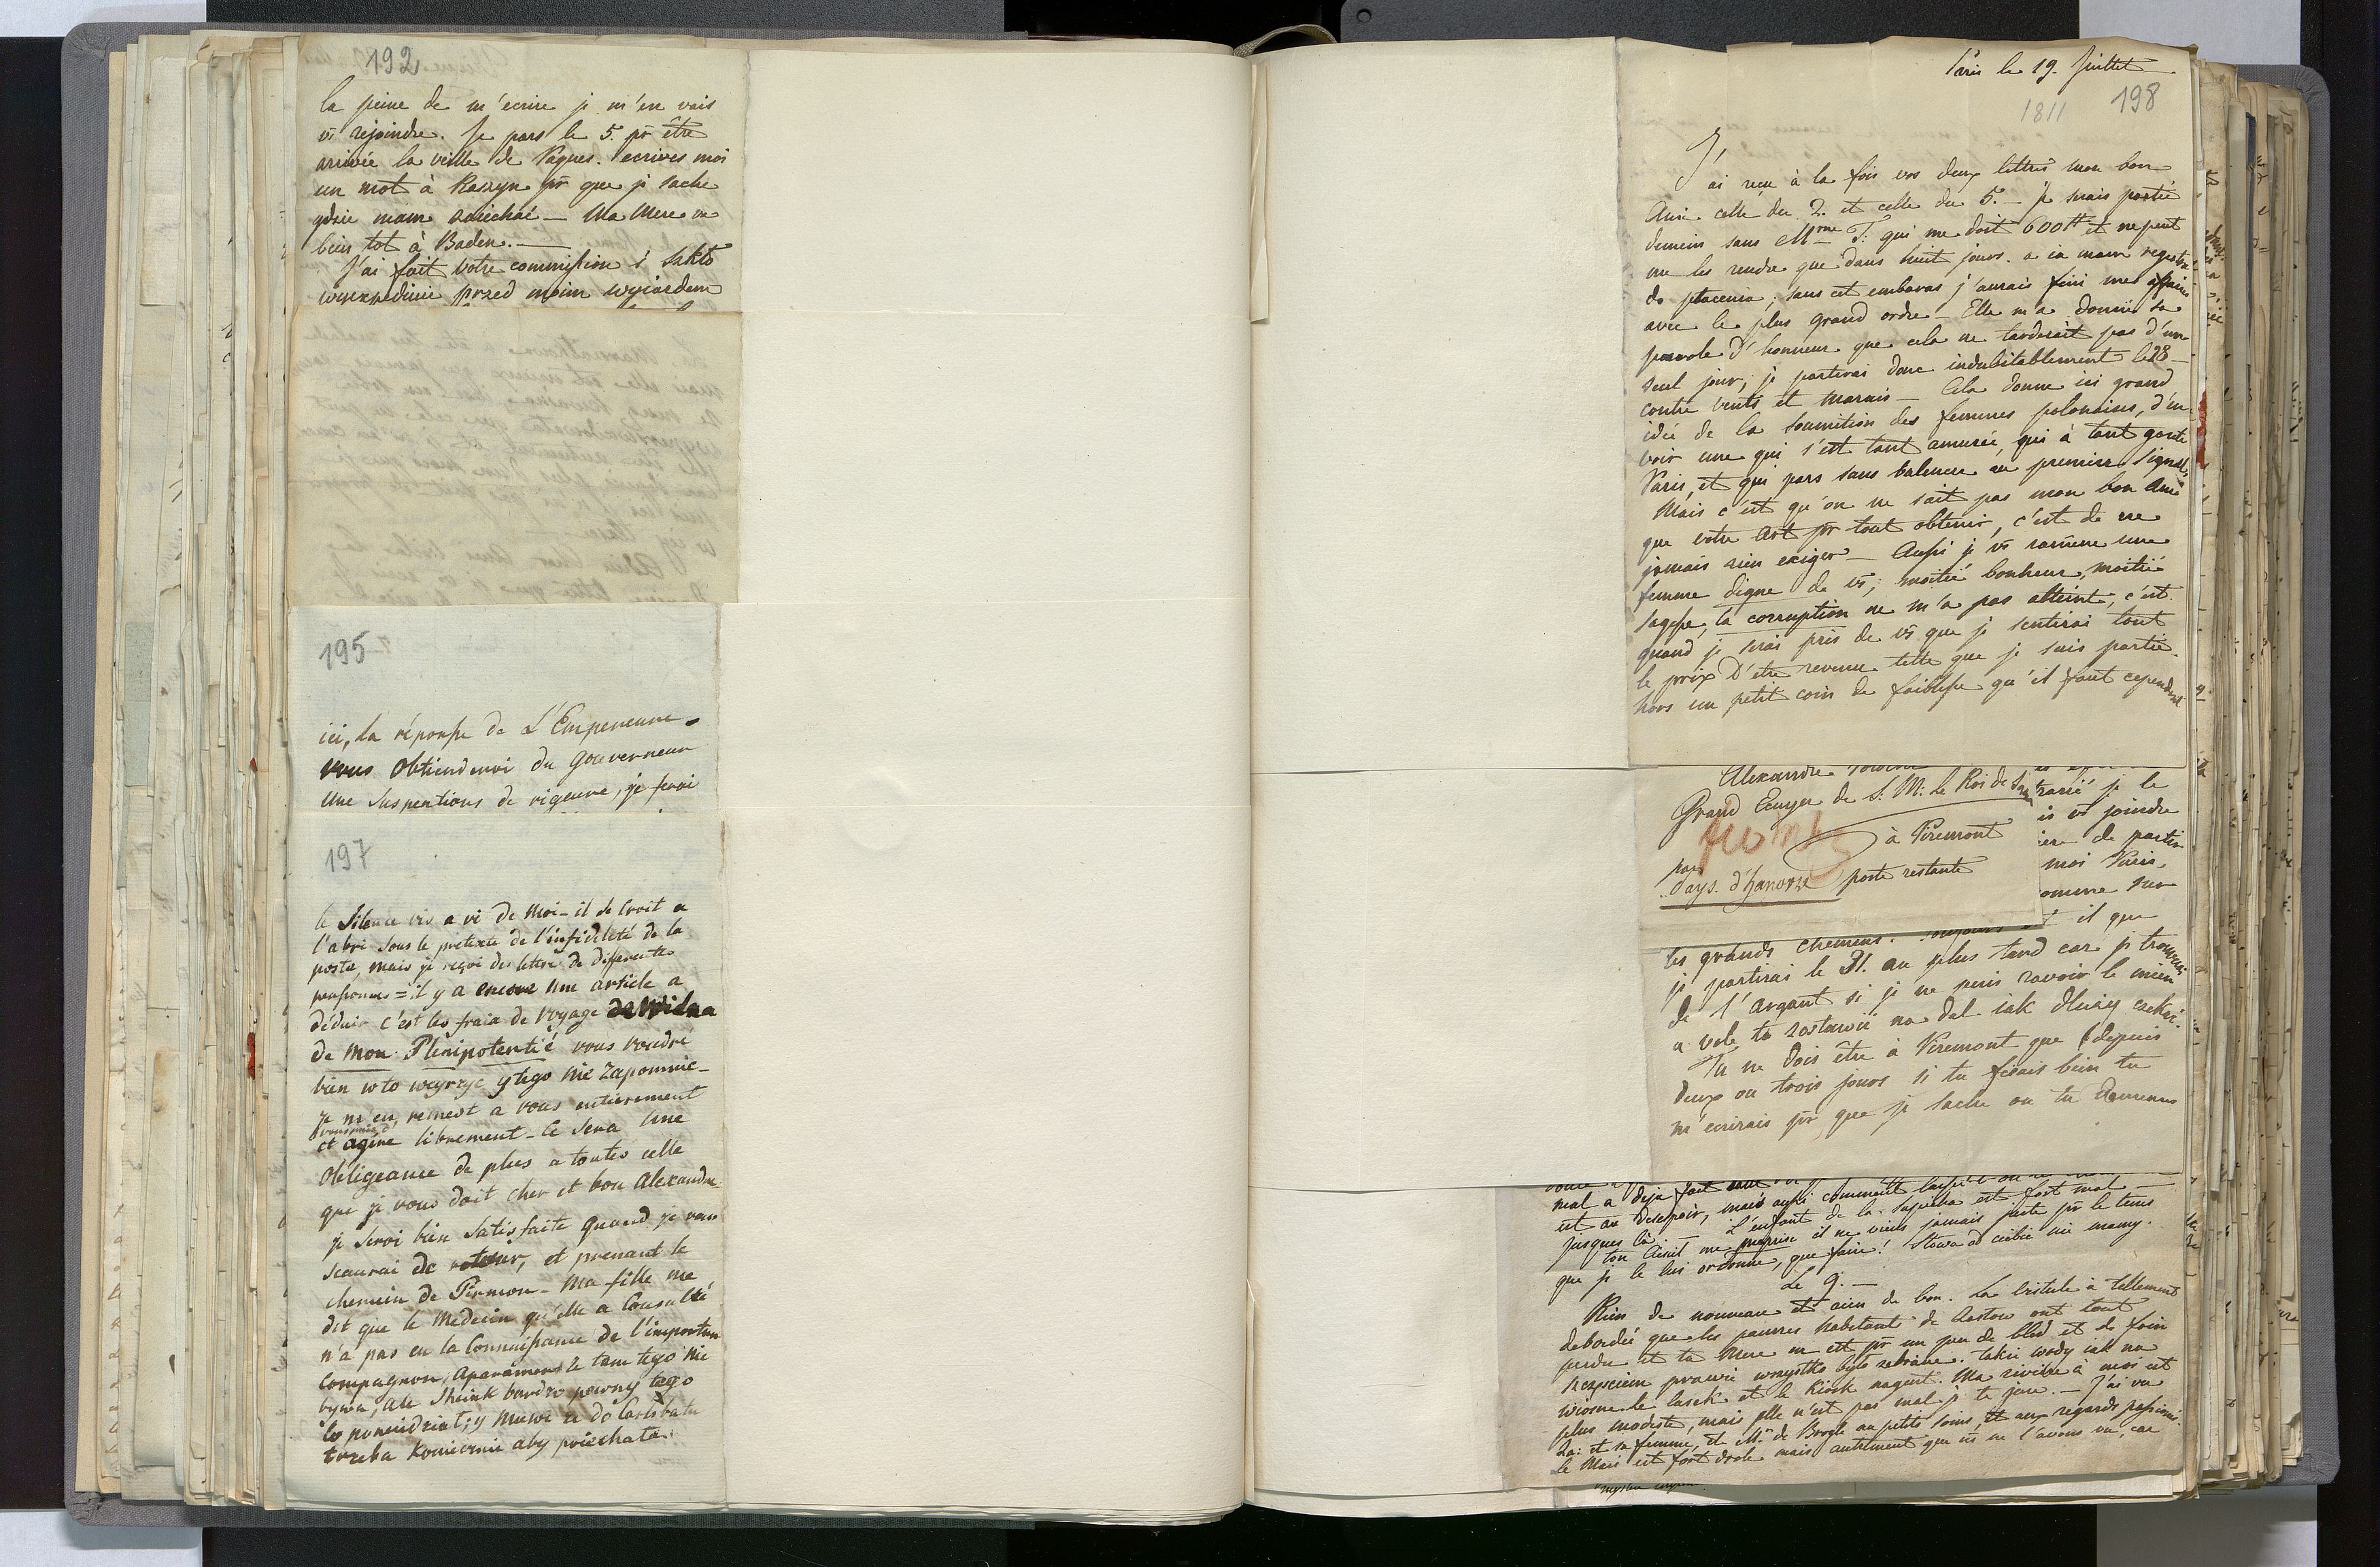 192
la peine de m'ecrire je m'en vais
vs rejoindre. Je pars le 5. pr être
arrivée la veille de Pâques. ecrives moi
un mot à Raszyn pr que je sache
gdzie mam zaiechać — Ma Mere va
bien tot à Baden. —
J'ai fait votre commission i Szkło
wyexpediuie przed moim wyiazdem
195
ici, la réponse de L'Empereure
vous obtiendroi du Gouverneur
une suspentions de rigeure, je ferai
197
le Silence vis a vi de Moi - il se croit a
l'abri sous le pretexte de l'infidelité de la
poste, mais je reçoi des lettres de differentes
personnes = il y a encore une article a
déduir c'est les frais de voyage de Wilna
de mon Plenipotentié vous voudré
bien w to weyrzyc y tego nie zapomnie -
Je m'en remest a vous entierement
et agire librement - ce sera une
obligeance de plus a toutes celle
que je vous doit cher et bon Alexandre
je seroi bien satisfaite quand je vous
scaurai de retour, et prenant le
chemin de Pirmon - Ma fille me
dit que le Medecin qu'elle a Consulté
n'a pas eu la Connaissance de l'important
compagnon, aparament ze tam tego nie
bywa, ale bardzo pewny tego
co powiedział; y muwi ze do Carlsbatu
trzeba koniecznie aby poiechała
Paris le 19. Juillet
1811
198
J'ai reçu à la fois vos deux lettres mon bon
Ami celle du 2. et celle du 5. — Je serais partie
demain sans Mme T: qui me doit 600 # et ne peut
me les rendre que dans huit jours. a ia mam
do płacenia; sans cet embaras j'aurais fini mes affaires
avec le plus grand ordre — Elle m'a donnée sa
parole d'honneur que cela ne tarderait pas d'un
seul jour; je partirai donc indubitablement le 28 —
contre vents et marais — Cela donne ici grand
idée de la soumition des femmes polonaises, d'en
voir une qui s'est tant amusée, qui à tant gouté
Paris, et qui pars sans balencer au premier signal,
Mais c'est qu'on ne sait pas mon bon Ami
que votre art pr tout obtenir, c'est de ne
jamais rien exiger — Aussi je vs ramene une
femme digne de vs; moitié bonheur, moitié
sagesse, la corruption ne m'a pas atteint; c'est
quand je serai près de vs que je sentirai tout
le prix d'etre revenue telle que je suis partie.
hors un petit coin de faiblesse qu'il faut cependant
Alexandre
Grand Ecuyer de S: M: Le Roi de Saxe
à Piremont
par
Pays d'Hanovre poste restante
je le
vs joindre
de partir
moi Paris,
comme sur
il que
les grands chemins. toujours
je partirai le 31. au plus tard car je trouverai
de l'argent si je ne puis ravoir le mien
a wole to zostawić na dal iak dłużey czekać.
Tu ne dois être à Piremont que depuis
deux ou trois jours si tu fesais bien tu
m'ecrirais pr que je sache ou tu demeures
mal a deja fait
est au desespoir, mais aussi comment
jusques là. — L'enfant de la est fort mal —
ton me meprise il ne vient jamais juste pr le tems
que je le lui ordonne, que faire! Słowa od ciebie nie mamy.
Le 9. —
Rien de nouveau et rien de bon. La Vistule à tellement
debordée que les pauvres habitants de ont tout
perdu et ta Mere en est pr un peu de bled et de foin
szczęściem prawie wszystko było zebrane. takie wody iak na
wiosne le lasek et le Kiosk nagent. Ma riviere à moi est
plus modeste, mais elle n'est pas mal je te jure. — J'ai vu
Za: et sa femme, et Mr de Broglie au petits soins et aux regards passionés.
le Mari est fort drole mais autrement que vs ne l'avons vu, car